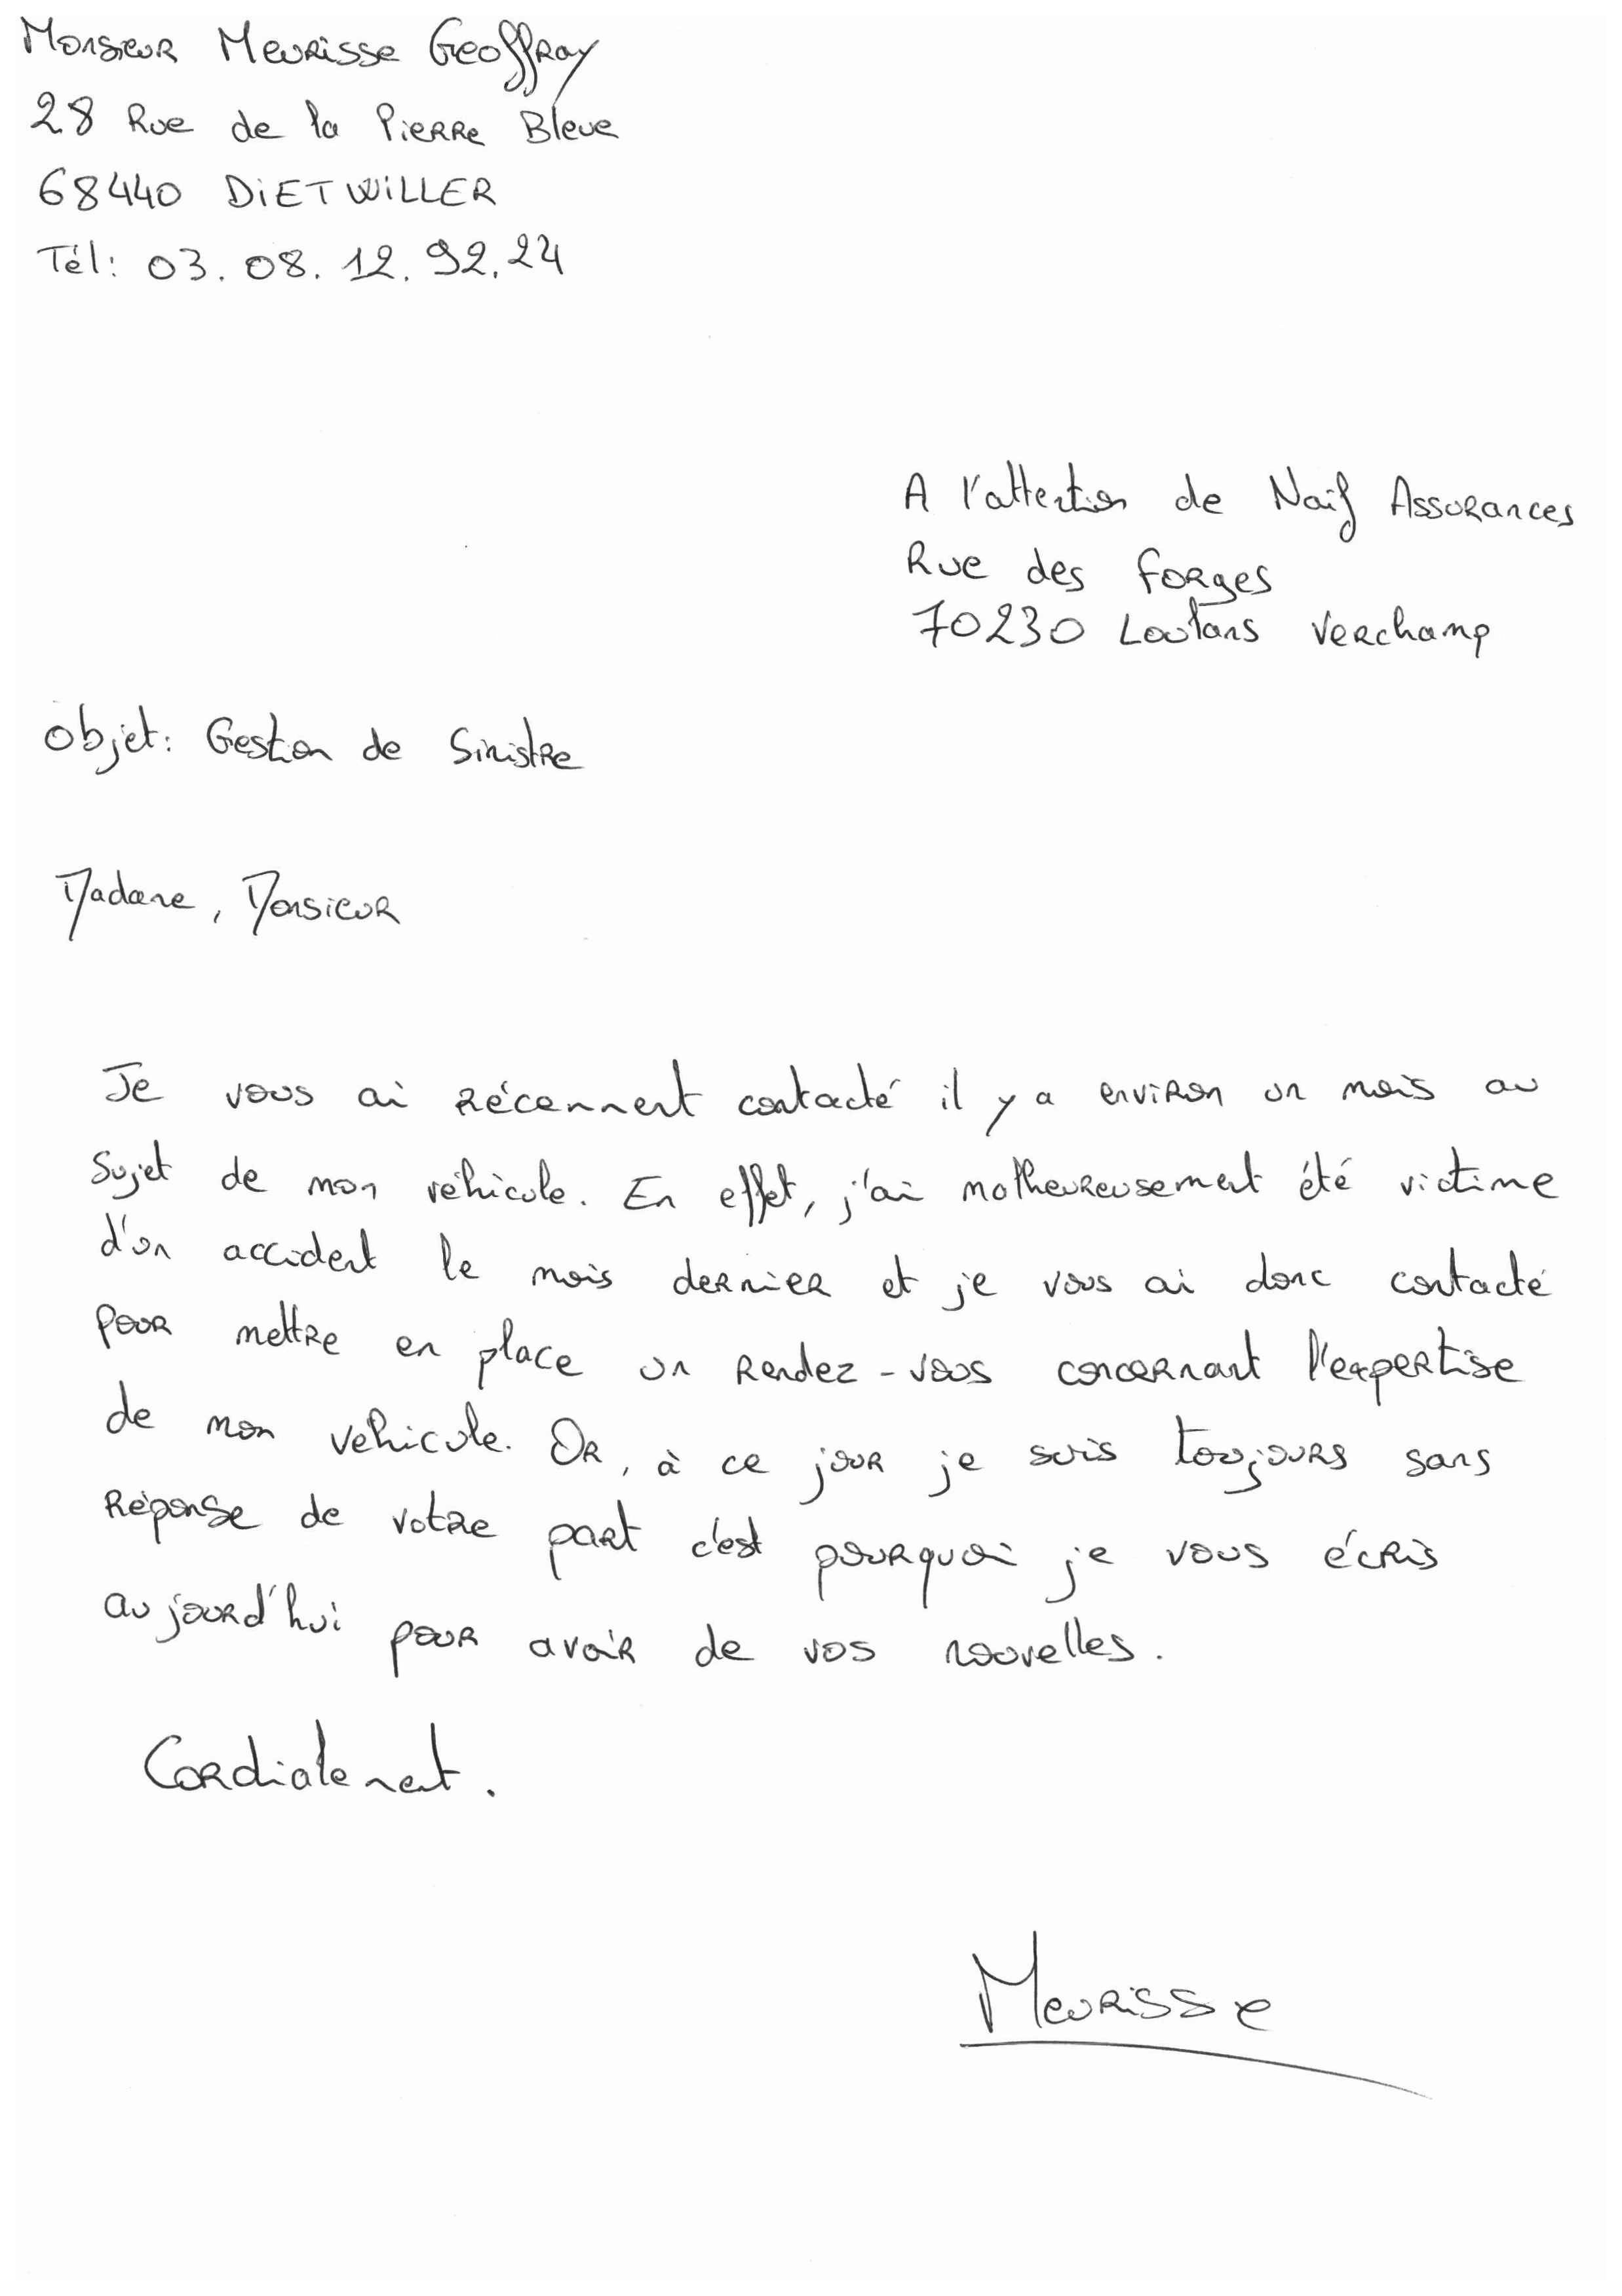 Monsieur Meurisse Geoffray
28 Rue de la Pierre Bleue
68440 DIETWILLER
Tél: 03.08.12.92.24
A l'attention de Naif Assurances
Rue des forges
70230 Loulans Verchamp
Objet: Gestion de Sinistre
Madame, Monsieur
Je vous ai récemment contacté il y a environ un mois au
sujet de mon véhicule. En effet, j'ai malheureusement été victime
d'un accident le mois dernier et je vous ai donc contacté
pour mettre en place un rendez-vous concernant l'expertise
de mon vehicule. Or, à ce jour je suis toujours sans
réponse de votre part c'est pourquoi je vous écris
aujourd'hui pour avoir de vos nouvelles.
Cordialement.
Meurisse